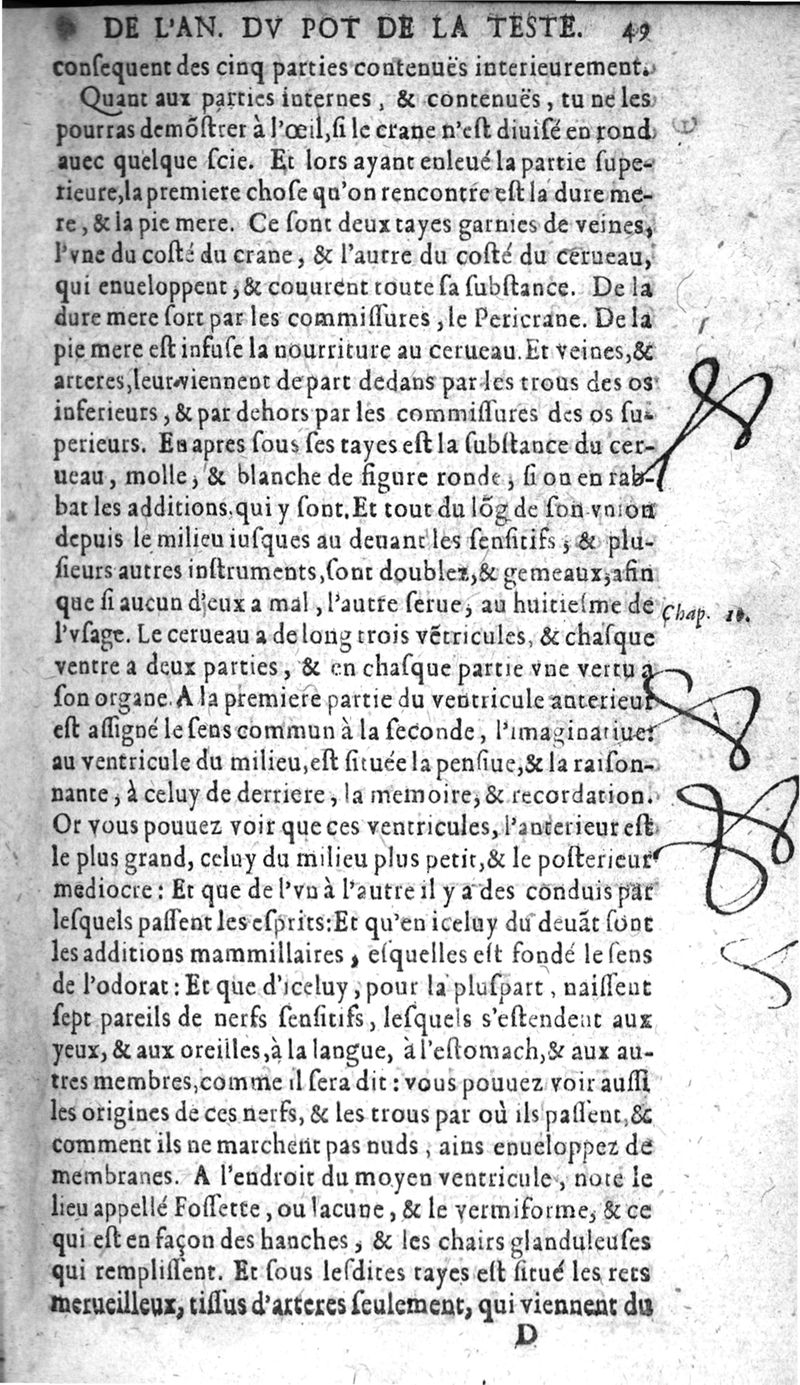 DE L'AN. DV POT DE LA TESTE. 49
conſequent des cinq parties contenuës interieurement.
Quant aux parties internes, & contenuës, tu ne les
pourras demõſtrer à l'œil, ſi le crane n'eſt diuiſé en rond
auec quelque ſcie. Et lors ayant enleué la partie ſupe-
rieure, la premiere choſe qu'on rencontre eſt la dure me-
re, & la pie mere. Ce ſont deux tayes garnies de veines,
l'vne du coſté du crane, & l'autre du coſté du cerueau,
qui enueloppent, & couurent toute ſa ſubſtance. De la
dure mere ſort par les commiſſures, le Pericrane. De la
pie mere eſt infuſe la nourriture au cerueau. Et veines, &
arteres, leur viennent de part dedans par les trous des os
inferieurs, & par dehors par les commiſſures des os ſu-
perieurs. En apres ſous ſes tayes eſt la ſubſtance du cer-
ueau, molle, & blanche de figure ronde, ſi on en rab-
bat les additions, qui y ſont. Et tout du lõg de ſon vnion
depuis le milieu iuſques au deuant les ſenſitifs, & plu-
ſieurs autres inſtruments, ſont doublez, & gemeaux, afin
que ſi aucun d'eux a mal, l'autre ſerue, au huitieſme de
Chap. 10.
l'vſage. Le cerueau a de long trois vẽtricules, & chaſque
ventre a deux parties, & en chaſque partie vne vertu a
ſon organe. A la premiere partie du ventricule anterieur
eſt aſſigné le ſens commun à la ſeconde, l'imaginatiue:
au ventricule du milieu, eſt ſituée la penſiue, & la raiſon-
nante, à celuy de derriere, la memoire, & recordation.
Or vous pouuez voir que ces ventricules, l'anterieur eſt
le plus grand, celuy du milieu plus petit, & le poſterieur
mediocre: Et que de l'vn à l'autre il y a des conduis par
leſquels paſſent les eſprits: Et qu'en iceluy du deuãt ſont
les additions mammillaires, eſquelles eſt fondé le ſens
de l'odorat: Et que d'iceluy, pour la pluſpart, naiſſent
ſept pareils de nerfs ſenſitifs, leſquels s'eſtendent aux
yeux, & aux oreilles, à la langue, à l'eſtomach, & aux au-
tres membres, comme il ſera dit: vous pouuez voir auſſi
les origines de ces nerfs, & les trous par où ils paſſent, &
comment ils ne marchent pas nuds, ains enueloppez de
membranes. A l'endroit du moyen ventricule, note le
lieu appellé Foſſette, ou lacune, & le vermiforme, & ce
qui eſt en façon des hanches, & les chairs glanduleuſes
qui rempliſſent. Et ſous leſdites tayes eſt ſitué les rets
merueilleux, tiſſus d'arteres ſeulement, qui viennent du
D